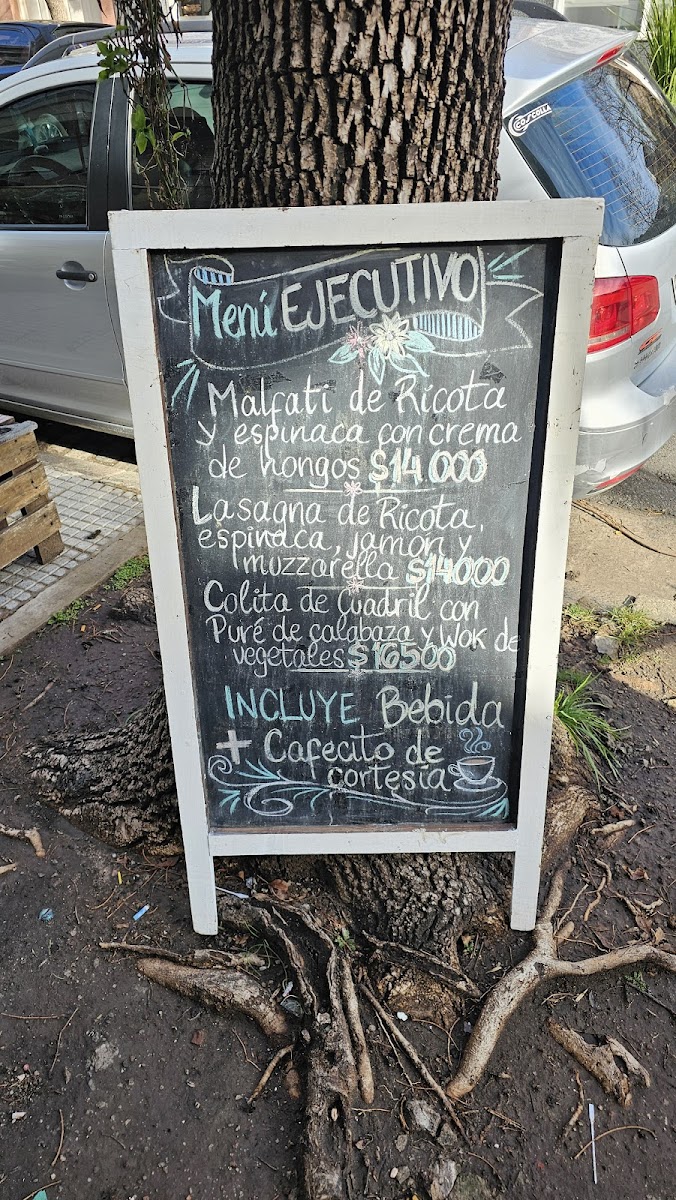 COSCOLLA
Menú EJECUTIVO
Malfati de Ricota
y espinaca con crema
de hongos $14.000
Lasagna de Ricota,
espinaca, jamón y
muzzarella $14000
Colita de Cuadril con
Puré de calabaza y Wok de
vegetales $16500
INCLUYE Bebida
+ Cafecito de
cortesía